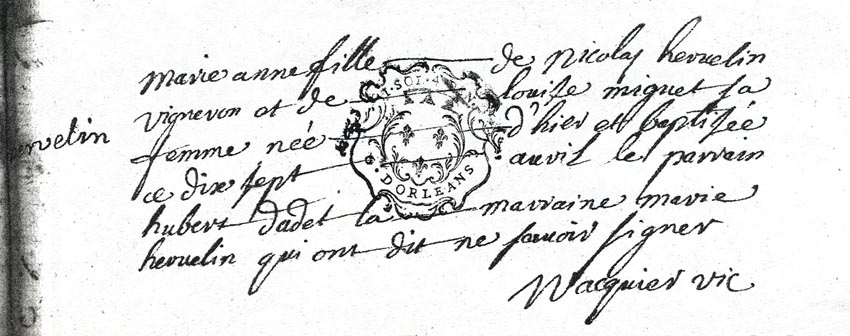 marie anne fille de Nicolas hervelin
vigneron et de louise miquet sa
femme née d'hier et baptisée
ce dix sept avril le parrain
hubert dadet la marraine marie
hervelin qui ont dit ne savoir signer
Wacquier vic
ervelin
SOLS
D'ORLEANS